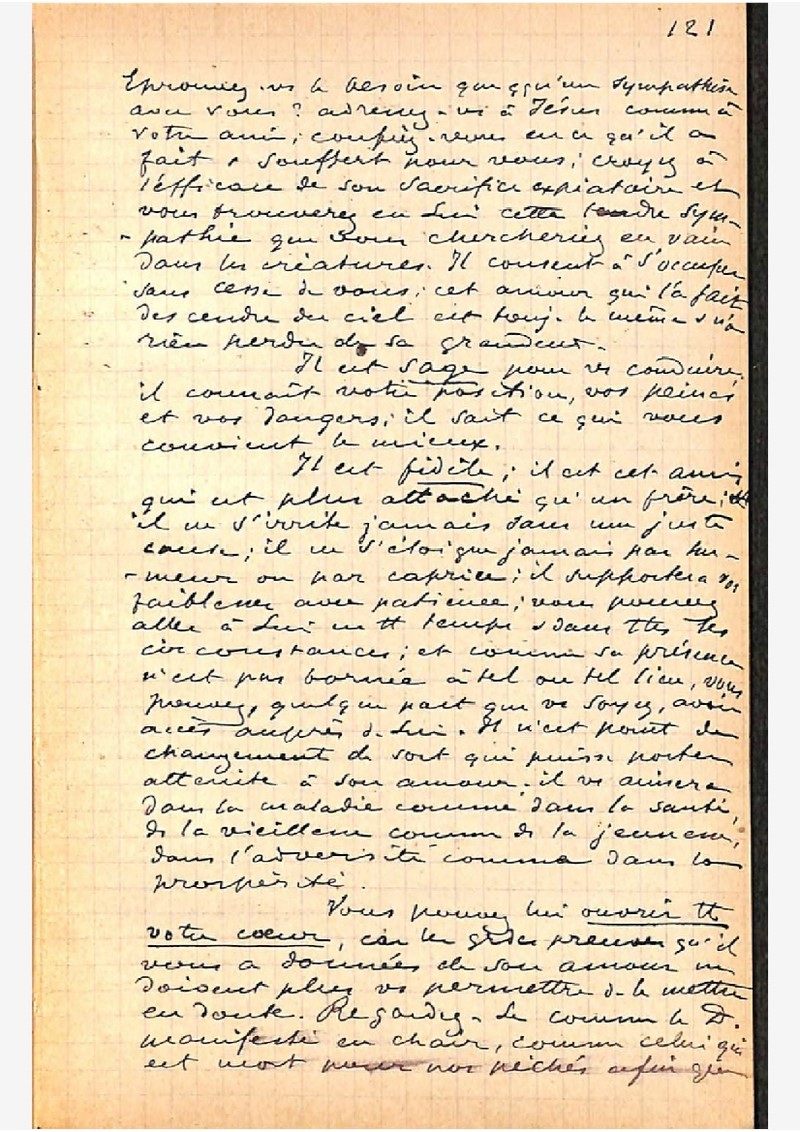 121
Eprouvez-vs le besoin que qqu'un sympathise
avec vous? adressez-vs à Jésus comme à
votre ami; confiez-vous en ce qu'il a
fait & souffert pour vous; croyez à
l'efficace de son sacrifice expiatoire et
vous trouverez en Lui cette tendre sym-
-pathie que vous chercheriez en vain
dans les créatures. Il consent à s'occuper
sans cesse de vous; cet amour qui l'a fait
descendre du ciel est touj. le même & n'a
rien perdu de sa grandeur.
Il est sage pour vs conduire.
il connaît votre position, vos peines
et vos dangers; il sait ce qui vous
convient le mieux.
Il est fidèle; il est cet ami
qui est plus attaché qu'un frère;
il ne s'irrite jamais sans une juste
cause; il ne s'éloigne jamais par hu-
-meur ou par caprice; il supportera vos
faiblesses avec patience; vous pouvez
aller à Lui en tt temps & dans ttes les
circonstances; et comme sa présence
n'est pas bornée à tel ou tel lieu, vous
pouvez, quelque part que vs soyez, avoir
accès auprès de Lui. Il n'est point de
changement de sort qui puisse porter
atteinte à son amour; il vs aimera
dans la maladie comme dans la santé,
ds la vieillesse comme ds la jeunesse,
dans l'adversité comme dans la
prospérité.
Vous pouvez lui ouvrir tt
votre cœur, car les gdes preuves qu'il
vous a données de son amour ne
doivent plus vs permettre de le mettre
en doute. Regardez-Le comme le D.
manifesté en chair, comme celui qui
est mort pour nos péchés afin que